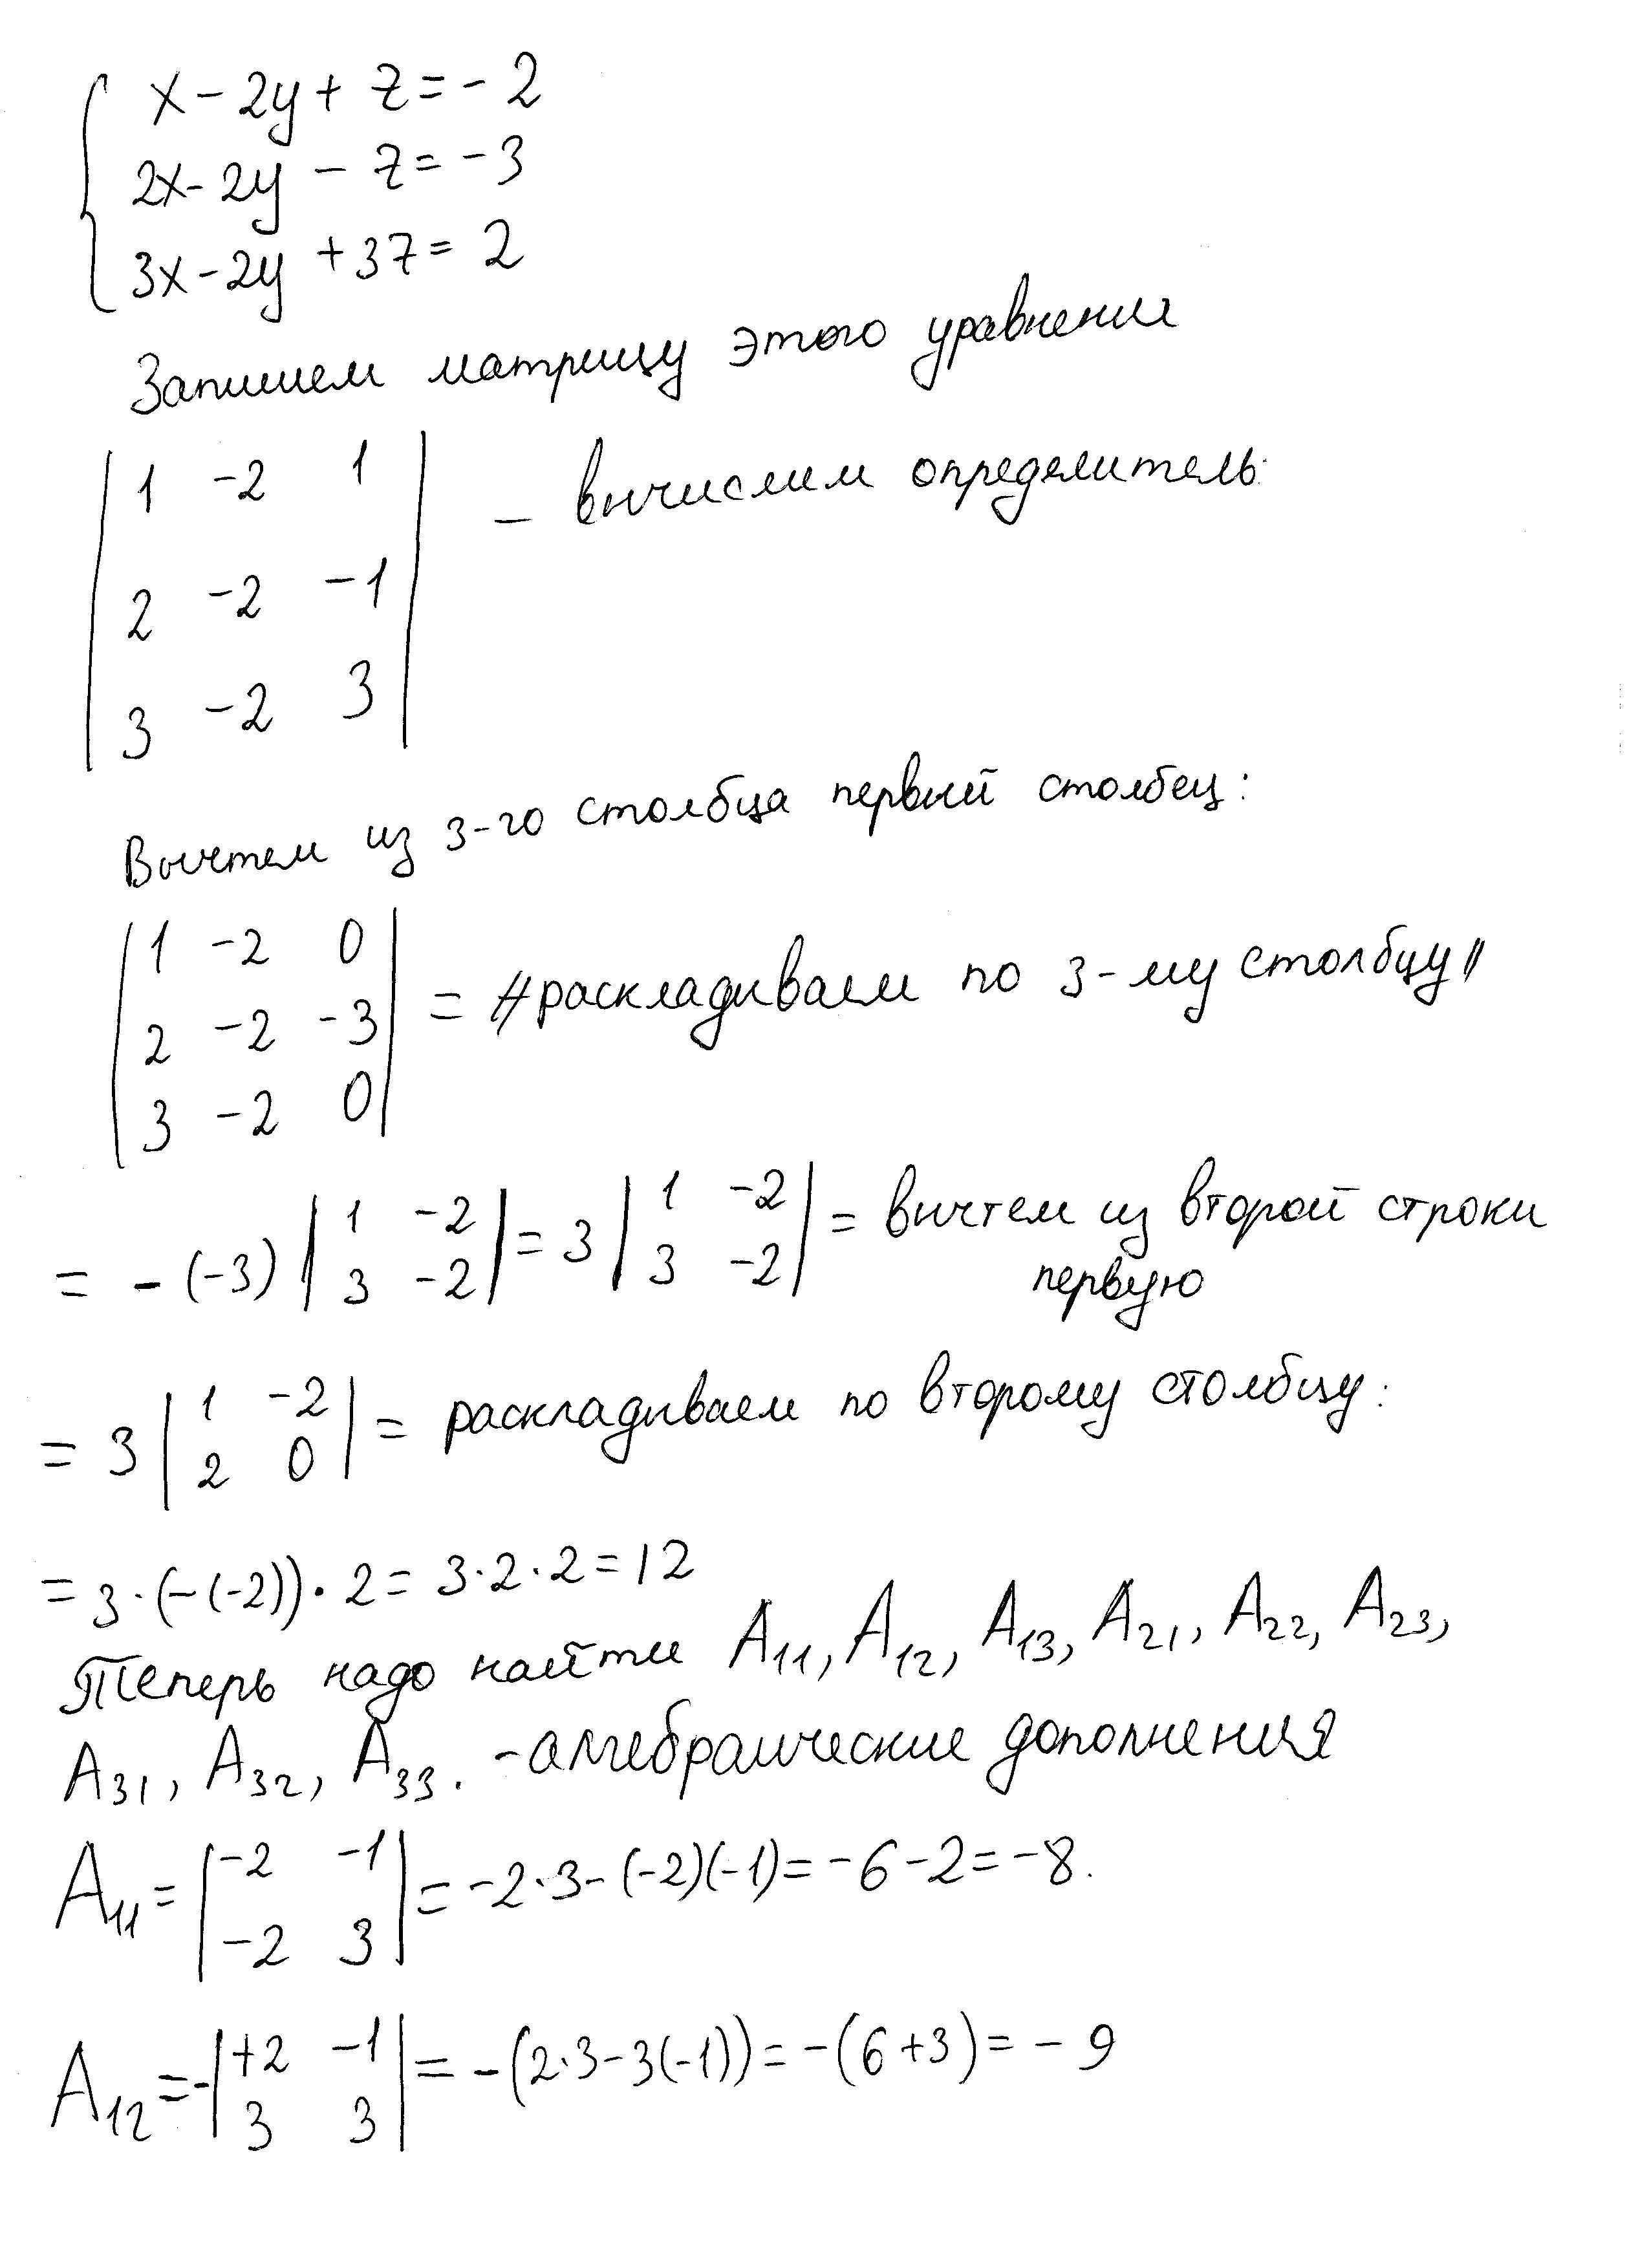 x - 2y + z = - 2
2x - 2y - z = - 3
3x - 2y + 3z = 2
Запишем матрицу этого уравнения
| 1 -2 1 | - вычислим определитель:
| 2 -2 -1 |
| 3 -2 3 |
Вычтем из 3-го столбца первый столбец:
| 1 -2 0 |
| 2 -2 -3 | = // раскладываем по 3-му столбцу //
| 3 -2 0 |
= - (-3) | 1 -2 | = 3 | 1 -2 | = вычтем из второй строки
| 3 -2 | | 3 -2 | первую
= 3 | 1 -2 | = раскладываем по второму столбцу:
| 2 0 |
= 3 · (-(-2)) · 2 = 3 · 2 · 2 = 12
Теперь надо найти A11, A12, A13, A21, A22, A23,
A31, A32, A33. - алгебраические дополнения
A11 = | -2 -1 | = -2 · 3 - (-2)(-1) = -6 - 2 = -8.
| -2 3 |
A12 = - | +2 -1 | = - (2 · 3 - 3(-1)) = -(6 + 3) = - 9
| 3 3 |